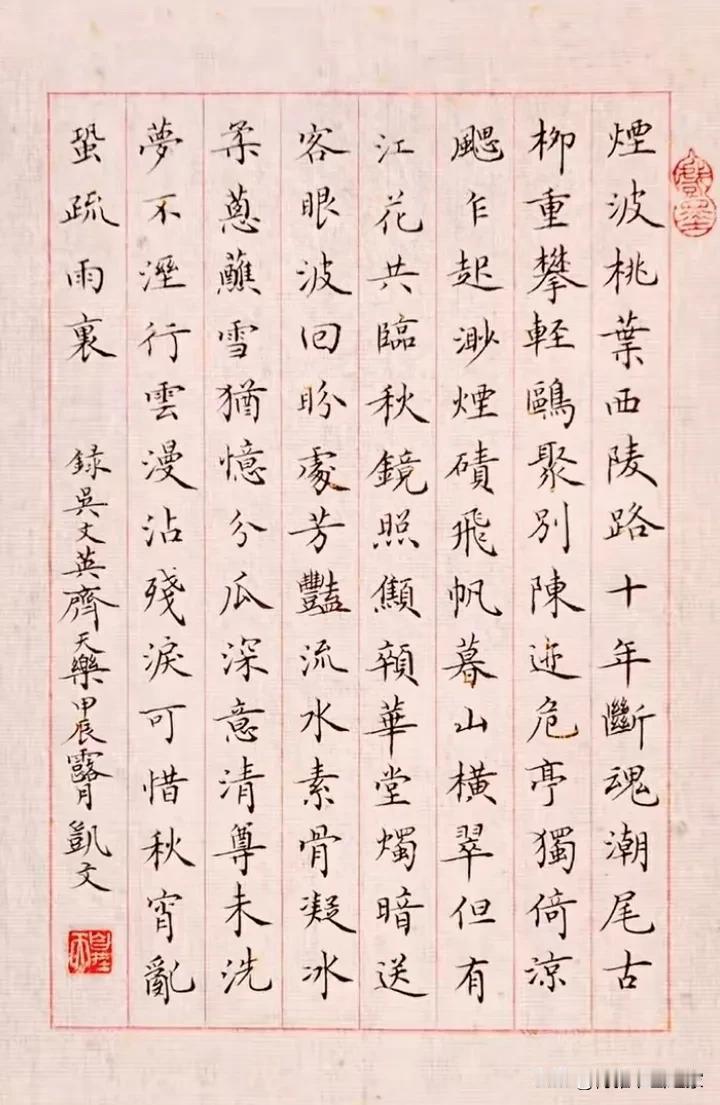 煙波桃葉西陵路十年斷魂潮尾古
柳重攀輕鷗聚別陳迹危亭獨倚涼
颸乍起渺煙磧飛帆暮山橫翠但有
江花共臨秋鏡照顦顇華堂燭暗送
客眼波回盼處芳豔流水素骨凝冰
柔蔥蘸雪猶憶分瓜深意清尊未洗
夢不溼行雲漫沾殘淚可惜秋宵亂
蛩疏雨裏
録吳文英齊天樂甲辰露月凱文